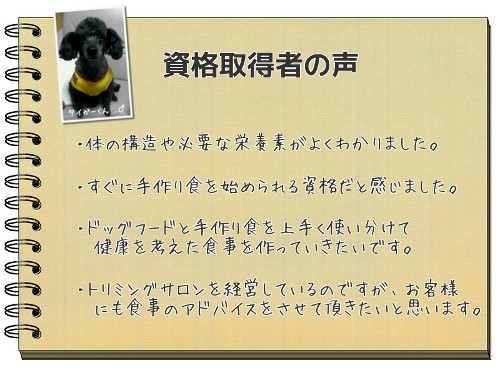 資格取得者の声
タイガーくん ♂
・体の構造や必要な栄養素がよくわかりました。
・すぐに手作り食を始められる資格だと感じました。
・ドッグフードと手作り食を上手く使い分けて
健康を考えた食事を作っていきたいです。
・トリミングサロンを経営しているのですが、お客様
にも食事のアドバイスをさせて頂きたいと思います。